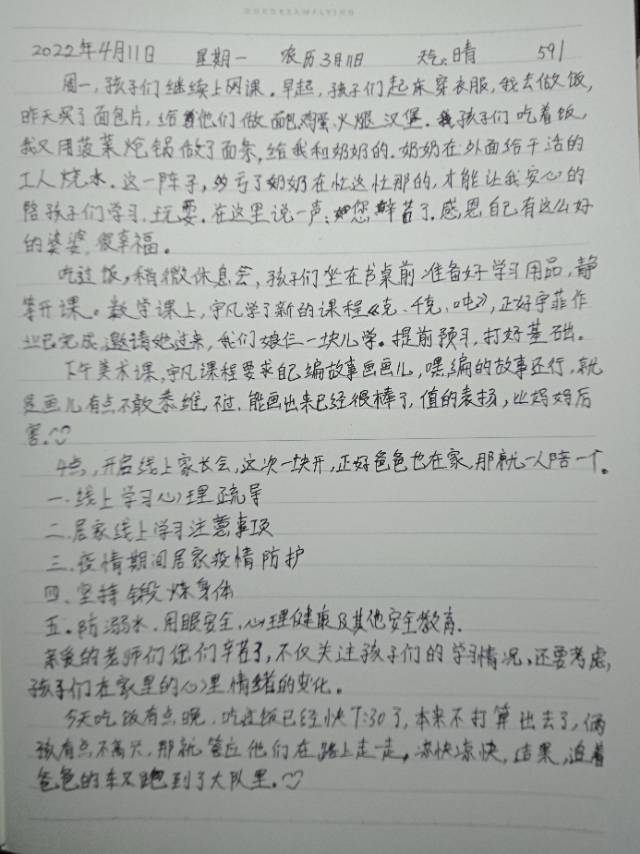 2022年4月11日 星期一 农历3月11日 天气:晴 591
周一,孩子们继续上网课。早起,孩子们起床穿衣服,我去做饭,
昨天买了面包片,给他们做面包鸡蛋火腿汉堡。孩子们吃着饭,
我又用菠菜炝锅做了面条,给我和奶奶的。奶奶在外面给干活的
工人烧水。这一阵子,多亏了奶奶在忙这忙那的,才能让我安心的
陪孩子们学习、玩耍。在这里说一声:您辛苦了。感恩自己有这么好
的婆婆,很幸福。
吃过饭,稍微休息会,孩子们坐在书桌前准备好学习用品,静
等开课。数学课上,宇凡学了新的课程《克、千克、吨》,正好宇菲作
业已完成,邀请她过来,我们娘仨一块儿学。提前预习,打好基础。
下午美术课,宇凡课程要求自己编故事画画儿,嘿,编的故事还行,就
是画儿有点不敢恭维。不过,能画出来已经很棒了,值的表扬,比妈妈厉
害。
4点,开启线上家长会,这次一块开,正好爸爸也在家,那就一人陪一个。
一.线上学习心理疏导
二.居家线上学习注意事项
三.疫情期间居家疫情防护
四.坚持锻炼身体
五.防溺水.用眼安全.心理健康及其他安全教育.
亲爱的老师们您们辛苦了,不仅关注孩子们的学习情况,还要考虑,
孩子们在家里的心里情绪的变化。
今天吃饭有点晚,吃过饭已经快7:30了,本来不打算出去了,俩
孩有点不高兴,那就答应他们在路上走一走。凉快凉快,结果,追着
爸爸的车又跑到了大队里。